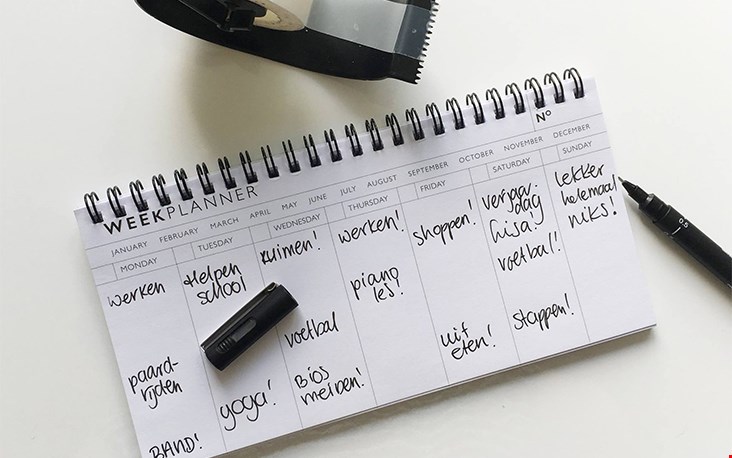 Nº
WEEKPLANNER
JANUARY FEBRUARY MARCH APRIL MAY JUNE JULY AUGUST SEPTEMBER OCTOBER NOVEMBER DECEMBER
MONDAY TUESDAY WEDNESDAY THURSDAY FRIDAY SATURDAY SUNDAY
werken
paard-
rijden
BAND!
Helpen
school
yoga!
ruimen!
voetbal
Bios
meiden!
werken!
piano
les!
shoppen!
uit
eten!
verjaar-
dag
Lisa!
voetbal!
stappen!
lekker
helemaal
niks!
0.5